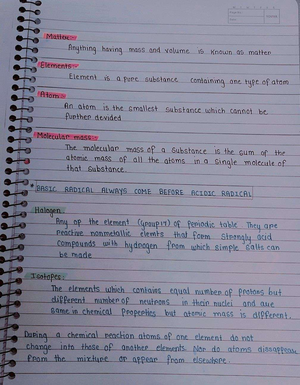 Matter:-
Anything having mass and volume is known as matter
Elements:-
Element is a pure substance containing one type of atom
Atom:-
An atom is the smallest substance which cannot be
further devided
Molecular mass:-
The molecular mass of a substance is the sum of the
atomic mass of all the atoms in a single molecule of
that substance.
* BASIC RADICAL ALWAYS COME BEFORE ACIDIC RADICAL
Halogen:
Any of the element (group17) of periodic table They are
reactive nonmetallic elemts that form strongly acid
compounds with hydrogen from which simple salts can
be made
Isotopes:
The elements which contains equal number of protons but
different number of neutrons in their nuclei and are
same in chemical properties but atomic mass is different.
During a chemical reaction atoms of one element do not
change into those of another elements. Nor do atoms disappear
from the mixture or appear from elsewhere.